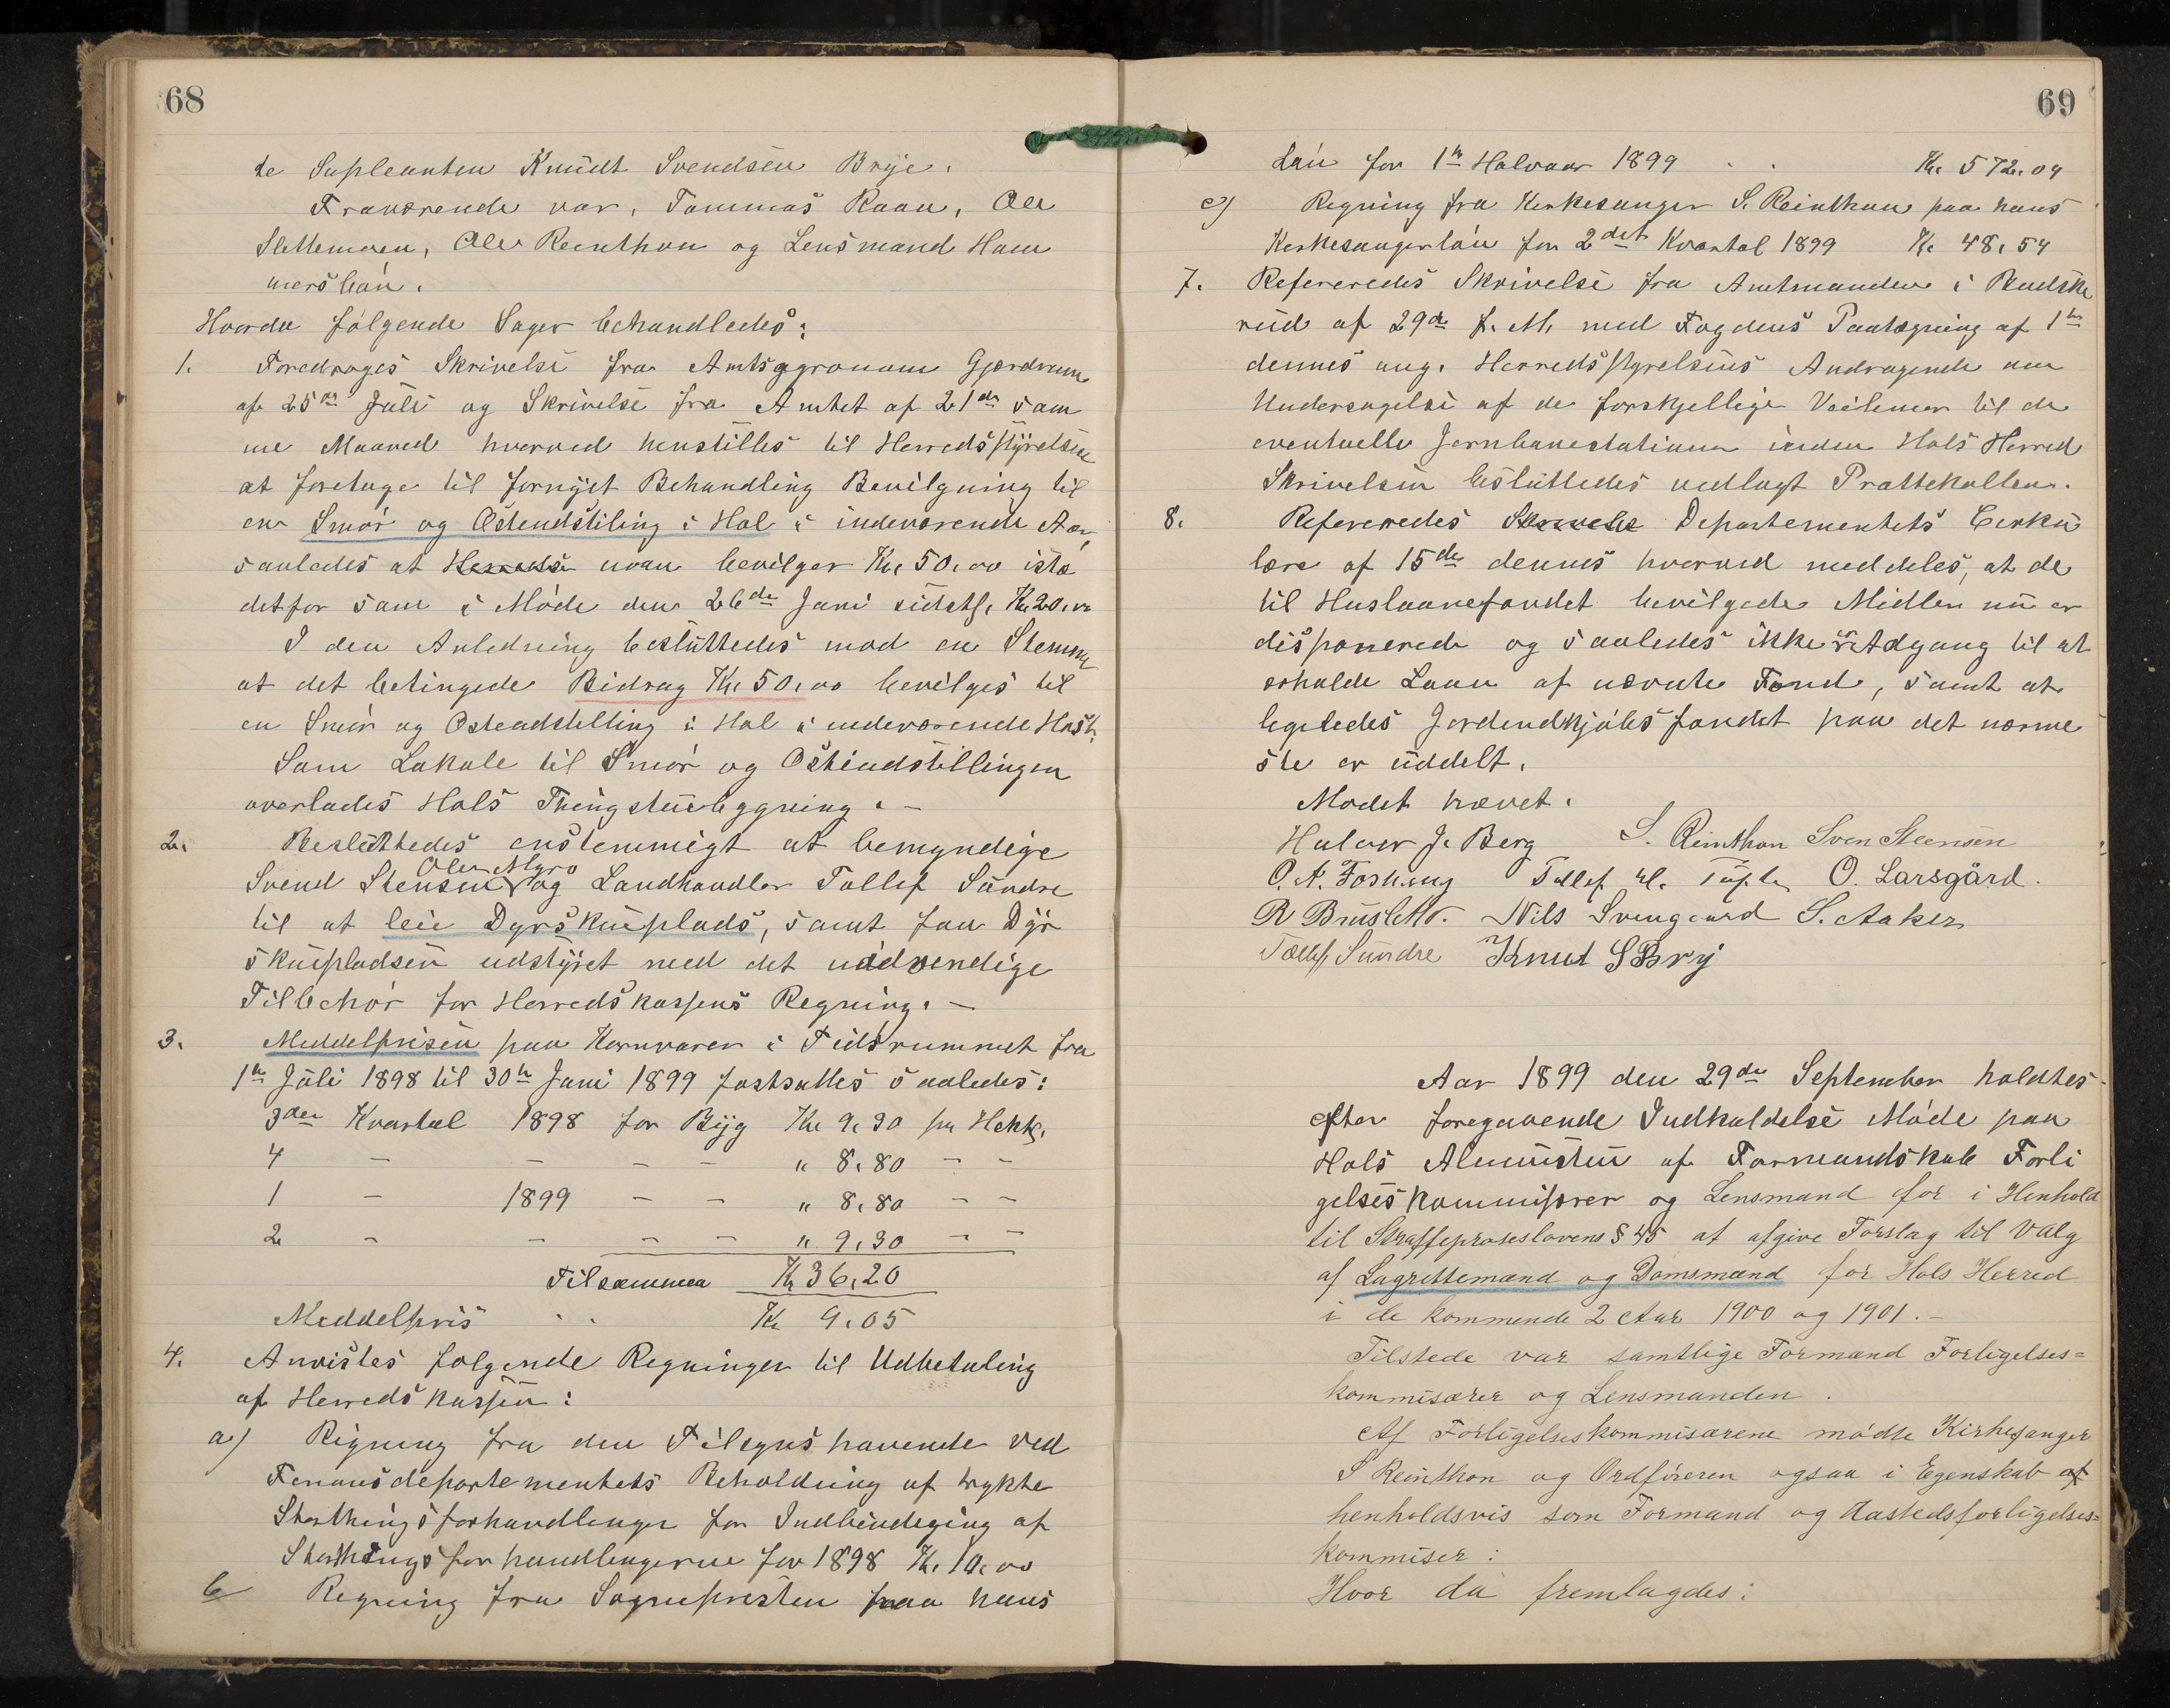 68
te Supleanten Knudt Svendsen Brye.
Fraværende var, Tommas Raan, Ole
Slettemoen, Ole Reinthon og Lensmand Ham
mersbøn.
Hvorda følgende Sager behandledes:
1. Foredroges Skrivelse fra Amtsagronom Gjerdrum
af 25de Juli og Skrivelse fra Amtet af 21de sam
me Maaned hvorved henstilles til Herredsstyrelsen
at foretage til fornyet Behandling Bevilgning til
en Smør og Osteudstiling i Hol i indeværende Aar,
saaledes at Herreds man bevilger Kr. 50.00 iste
detfor som i Møde den 26de Juni sidstl. Kr 20.00
I den Anledning besluttedes mod en Stemme
at det betingede Bidrag Kr. 50.00 bevilges til
en Smør og Osteudstelling i Hol i indeværende Høst.
Som Lokale til Smør og Osteudstillingen
overlades Hols Thingstuebygning. —
2. Besluttedes enstemmigt at bemyndige
Ole Myro
Svend Stensen og Landhandler Tollef Sundre
til at leie Dyrskueplads, samt faa Dyr
skuepladsen udstyret med det nødvendige
Tilbehør for Herredskassens Regning. —
3. Meddelprisen paa Kornvarer i Tidsrummet fra
1te Juli 1898 til 30te Juni 1899 fastsattes saaledes:
3die Kvartal 1898 for Byg Kr 9.30 pr Hektl.
4 — — — — " 8.80 — —
1 — 1899 — — " 8.80 — —
2 — — — — " 9.30 — —
Tilsammen Kr 36.20
Meddelpris . . Kr 9.05
4. Anvistes følgende Regninger til Udbetaling
af Herredskassen:
a) Regning fra den Tilsynshavende ved
Finansdepartementets Beholdning af trykte
Storthingsforhandlinger for Indbindeging af
Storthingsforhandlingerne for 1898 Kr. 10.00
b Regning fra Sognepresten paa hans
69
Løn for 1te Halvaar 1899 . . Kr. 572.04
c) Regning fra Kerkesanger S. Reinthon paa hans
Kerkesangerløn for 2det Kvartal 1899 Kr 48.54
7. Refereredes Skrivelse fra Amtmanden i Budske
rud af 29de f. M. med Fogdens Paategning af 1te
dennes ang. Herredsstyrelsens Andragende om
Undersøgelse af de forskjellige Veilinier til de
eventuelle Jernbanestationer inden Hols Herred
Skrivelsen besluttedes vedlagt Prottekollen.
8. Refereredes Skrivelse Departementets Cerku
lære af 15de dennes hvorved meddeles, at de
til Huslaanefondet bevilgede Midler nu er
disponerede og saaledes ikke er Adgang til at
erholde Laan af nævnte Fond, samt at
ligeledes Jordindkjøbsfondet paa det nærme
ste er uddelt.
Mødet hævet.
Halvor J. Berg S. Reinthon Sven Steensen
O. A. Foshaug Tollef H. Tufte O. Larsgård.
R Brusletto. Nils Svengaard S. Aaker
Tollef Sundre Knud S Bry
Aar 1899 den 29de September holdtes
efter foregaaende Indkaldelse Møde paa
Hols Almustue af Formandskab Forli
gelseskommisærer og Lensmand for i Henhold
til Straffeproseslovens § 45 at afgive Forslag til Valg
af Lagrettemænd og Domsmænd for Hols Herred
i de kommende 2 Aar 1900 og 1901. —
Tilstede var samtlige Formænd Forligelses=
kommisærer og Lensmanden.
Af Forligelseskommisærene mødte Kirkesanger
S Reinthon og Ordføreren ogsaa i Egenskab af
henholdsvis som Formand og Aastedsforligelses=
kommisær:
Hvor da fremlagdes: